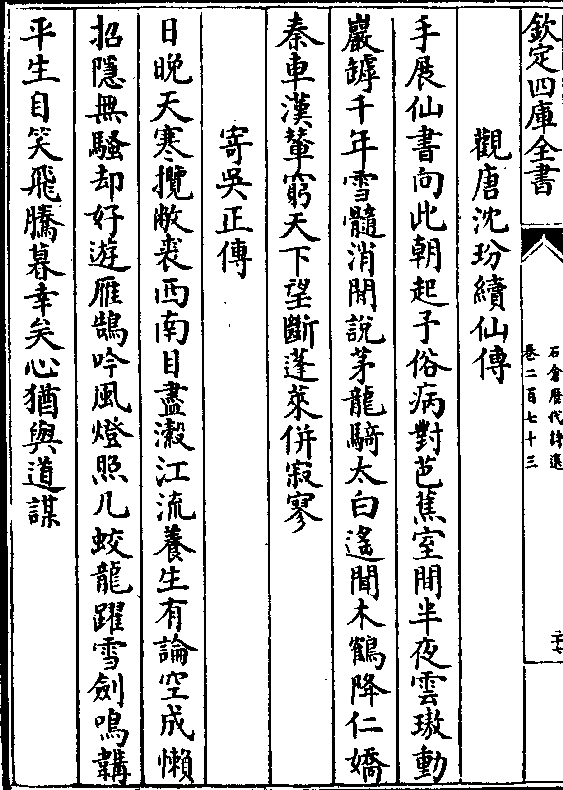 欽定四庫全書
石倉歷代詩選
卷二百七十三
觀唐沈玢續仙傳
手展仙書向此朝起予俗病對芭蕉室間半夜雲璈動
巖罅千年雪髓消閒說茅龍騎太白遙聞木鶴降仁嬌
秦車漢輦窮天下望斷蓬萊併寂寥
寄吳正傳
日晚天寒攬敝裘西南目盡瀫江流養生有論空成懶
招隱無騷却好遊雁鵠吟風燈照几蛟龍躍雪劍鳴韝
平生自笑飛騰暮幸矣心猶與道謀